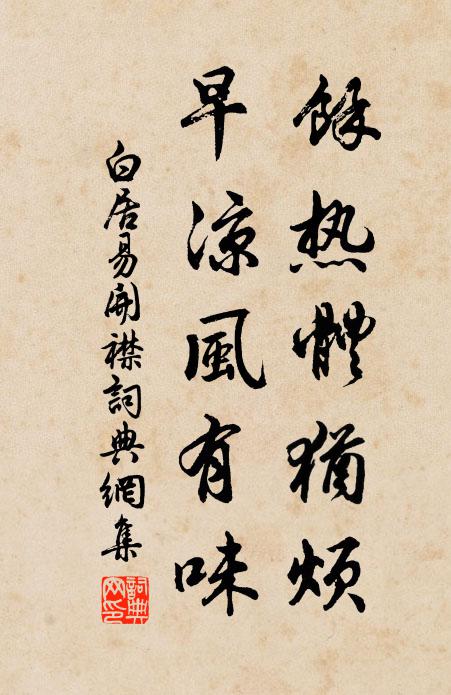 餘热體猶煩
早涼風有味
白居易開襟詞典網集
詞典
网印